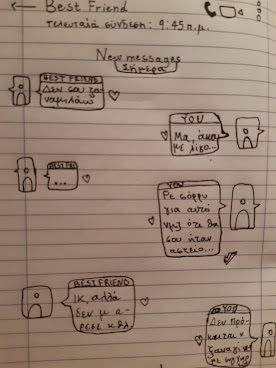 Best Friend
τελευταία σύνδεση: 9:45 π.μ.
New messages
Σήμερα
BEST FRIEND
Δεν σου ξα-
ναμιλάω
YOU
Μα, άκου
με λίγο...
...
YOU
Ρε σόρρυ
για αυτό
νμζ ότι θα
σου ήταν
αστείο...
BEST FRIEND
Ικ, αλλά
δεν μ α-
ρεσε κ πλ
YOU
Δεν πρό-
κειται ν
ξαναγίνει